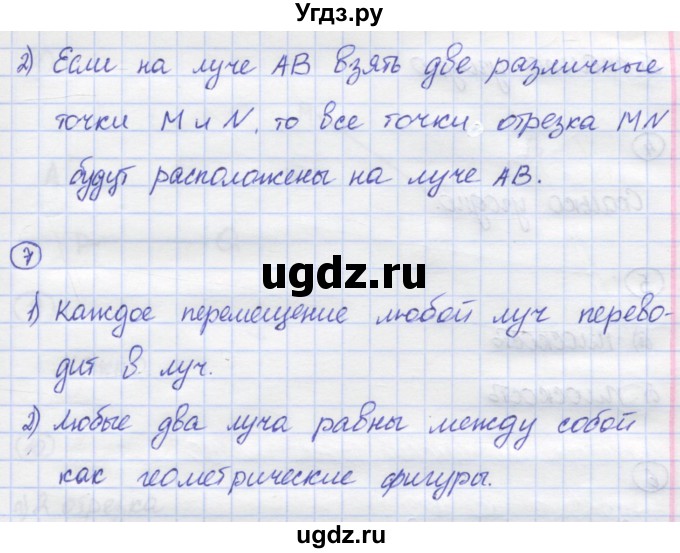 Угдз.ру
2) Если на луче AB взять две различные
точки M и N, то все точки отрезка MN
будут расположены на луче AB.
7
ugdz.ru
1) Каждое перемещение любой луч перево-
дит в луч.
2) Любые два луча равны между собой
как геометрические фигуры.
ugdz.ru